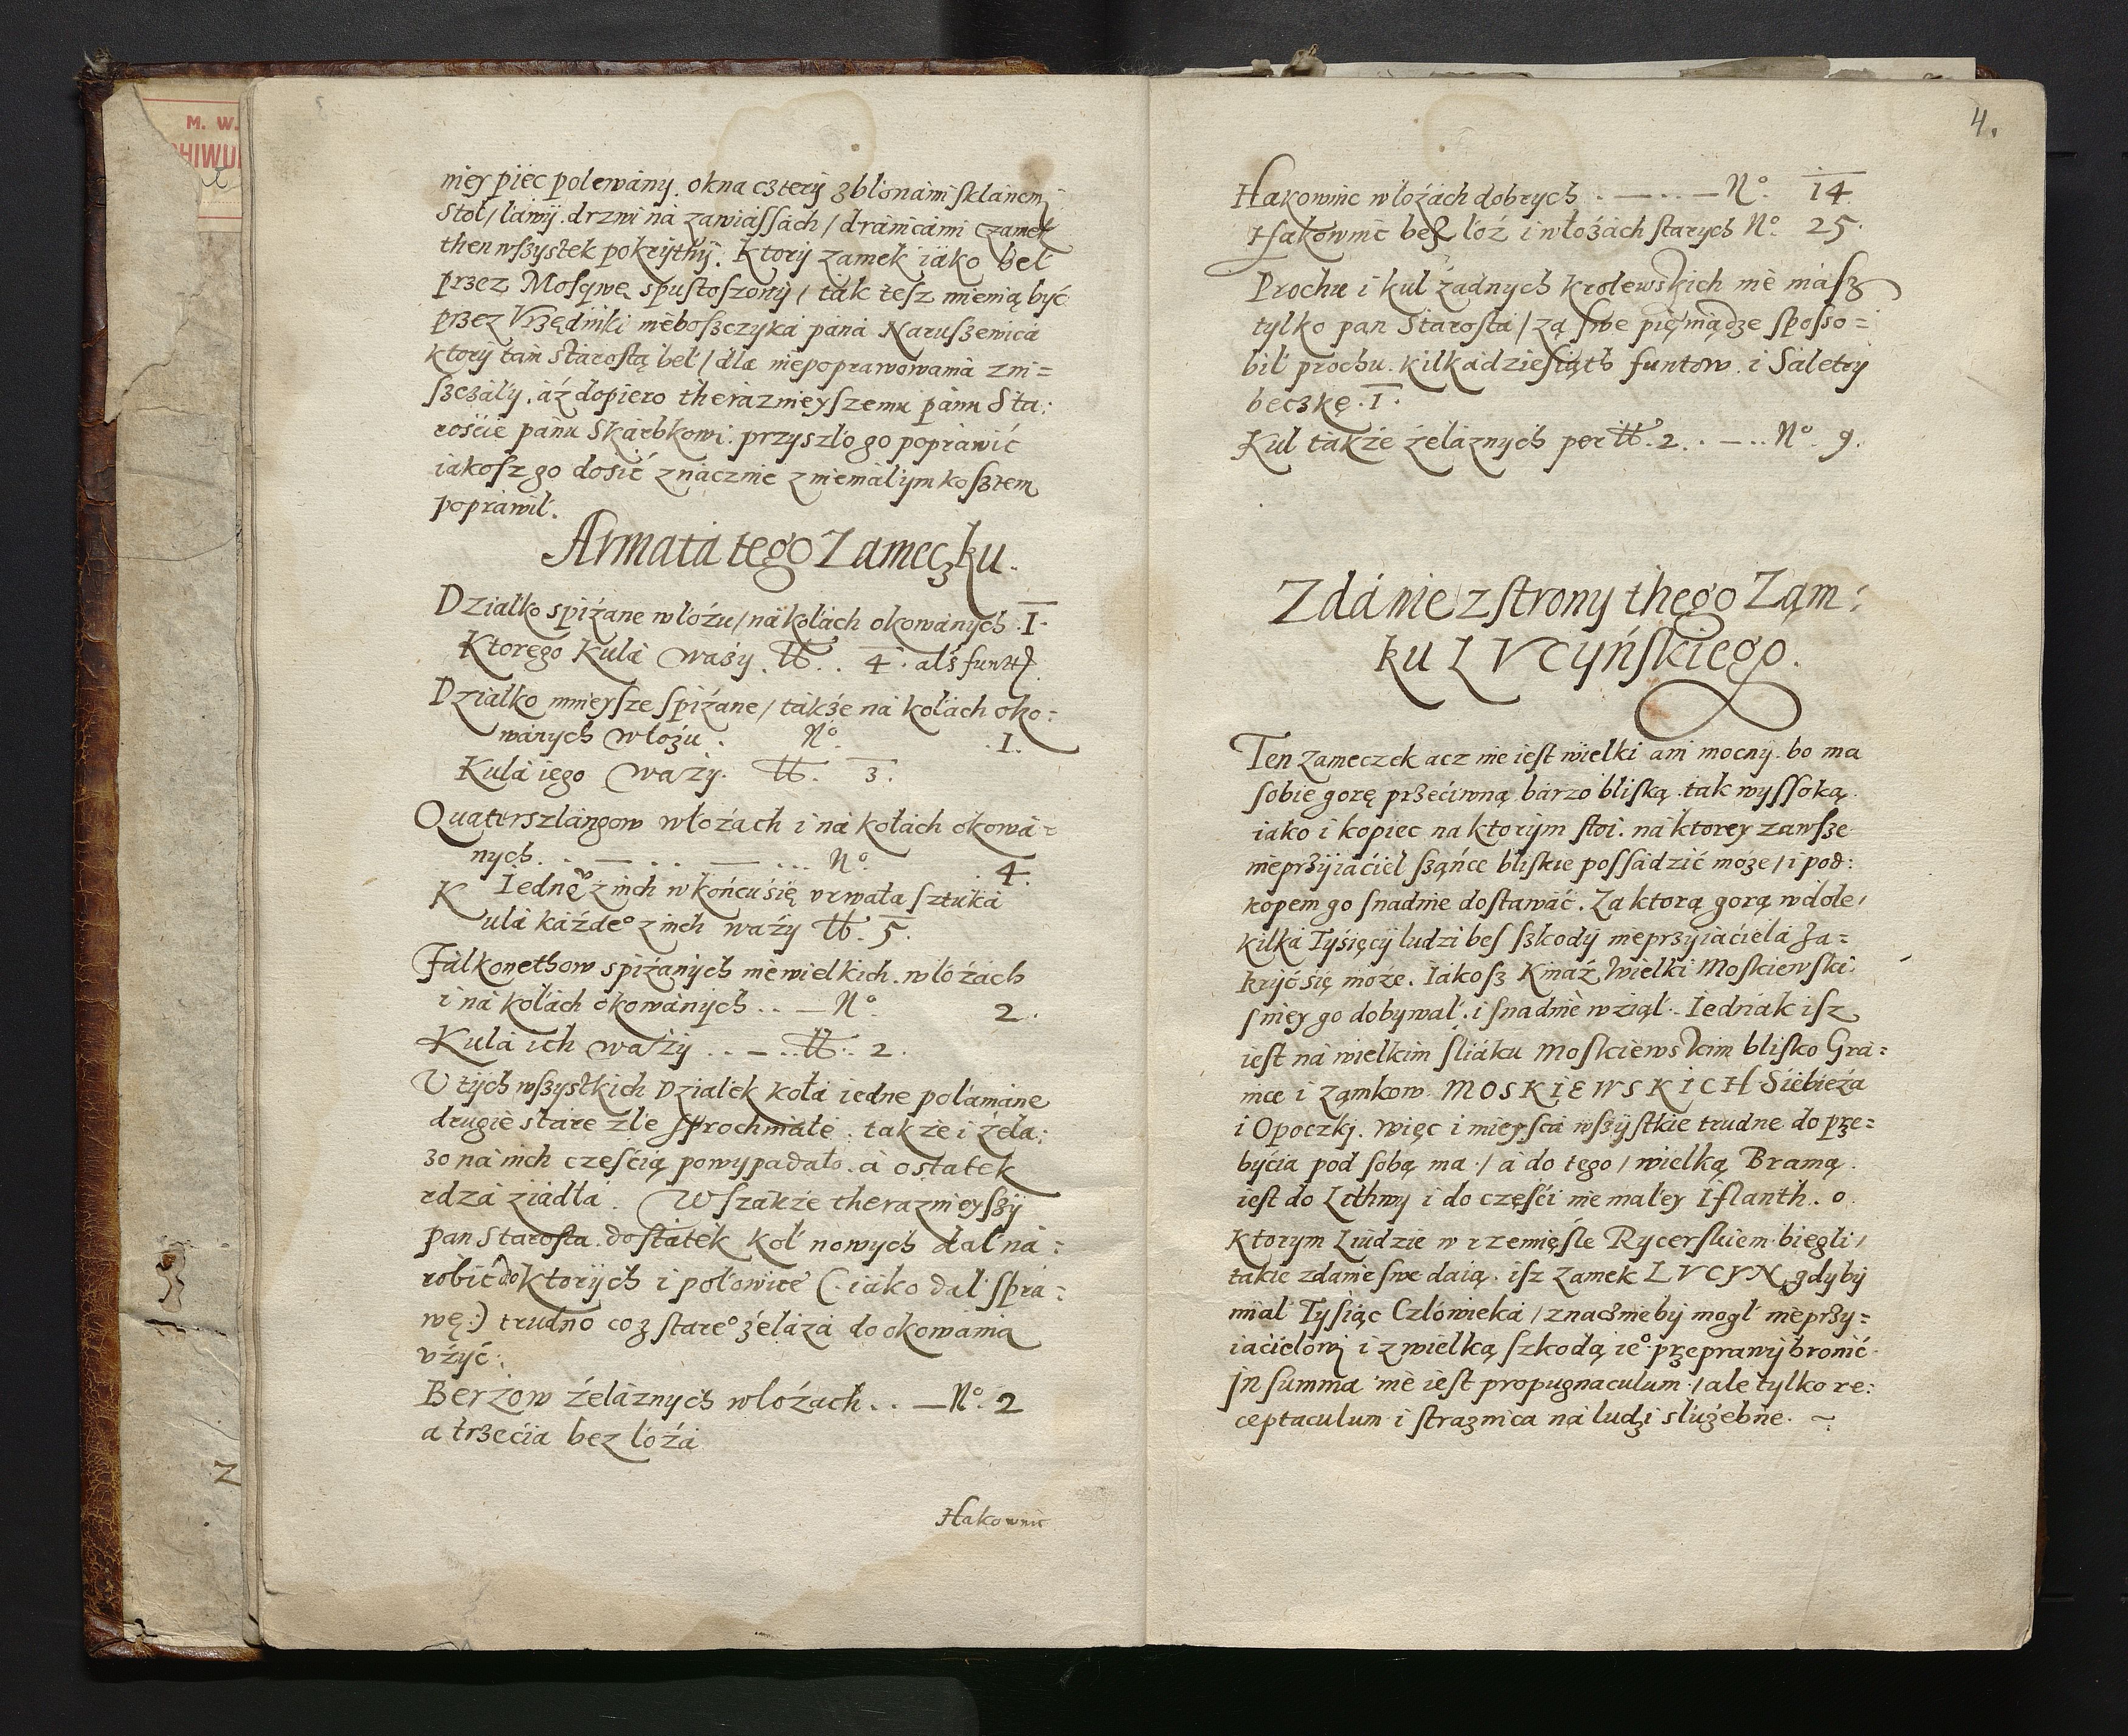 M. W.
HIWU
niey piec polewány. okna cztery z blonámi sklánemi
stoł / láwy. drzwi ná zawiassách / dránicámi zamek
then wszystek pokrythy. Ktory zamek iáko beł
przez Mosqwę spustoszony / ták tesz mienią być
przez Vrzędniki niebosczyká páná Naruszewicá
ktory tám stárostą beł / dla niepoprawowániá zni=
szczáły. áż dopiero therázmeyszemu pánu Stá:
rościé pánu Skárbkowi. przyszło go popráwić
iákosz go dosić znácznie z niemáłym kosztem
popráwił.
Armatá tego Zameczku.
Działko spiżane w łożu / ná kołách okowánych .I.
Ktorego Kulá waży. ℔. . 4. als funt
Działko mnieysze spiżane / tákże ná kołách oko=
wánych w łożu. N° .I.
Kulá iego waży. ℔. 3.
Quaterszlángow w łożách i ná kołách okowá=
nych. . — . . — . . . N° 4.
Iednę z nich w końcu się vrwáłá sztuká
Kulá káżde° z nich waży ℔. 5.
Fálkonethow spiżánych niewielkich. w łożách
i ná kołách okowánych . . — N° 2.
Kulá ich waży . . — . . ℔. 2.
V tych wszystkich Działek kołá iedne połamáne
drugie stáre złe sprochniałe. tákże i żelá:
zo ná nich częścią powypadało. á ostátek
rdzá ziádłá. Wszákże therázmeyszy
pan Stárostá. dostátek koł nowych dał ná:
robić do ktorych i połowice (. iáko dał sprá:
wę:) trudno co z stáre° żelázá do okowánia
vżyć.
Berzow żeláznych w łożách . . — N° 2
a trzeciá bez łożá
Hákownic
4.
Hákownic w łożách dobrych . — . . — N°. 14.
Hákownic bez łoż i w łożách stárych N° 25.
Prochu i kul żadnych krolewskich nie mász
tylko pan Stárostá / zá swe pięniądze sposso=
bił prochu. kilkádziesiąth funtow. i Sáletry
beczkę .I.
Kul tákże żeláznych per ℔. 2. . — . . N° 9.
Zdánie z strony thego Zam:
ku LVCyńskiego.
Ten zameczek acz nie iest wielki ani mocny. bo ma
sobie gorę przećiwną bárzo bliską. ták wyssoką.
iáko i kopiec na ktorym stoi. ná ktorey záwsze
nieprzyiaćiel száńce bliskie possádzić może / i pod:
kopem go snádnie dostáwáć. Za ktorą gorą w dole /
kilká Tyśięcy ludzi bes szkody nieprzyiaćielá zá=
kryć się może. Iákosz Kniáź Wielki Moskiewski.
s niey go dobywał. i snádnie wziął. Iednák isz
iest ná wielkim śláku Moskiewskim blisko Grá=
nice i zamkow MOSKIEWSKICH Siebieżá
i Opoczki. więc i mieyscá wszystkie trudne do prze=
byćia pod sobą ma. / á do tego / wielką Bramą.
iest do Lithwy i do częśći nie máłey Iflanth. o
Ktorym Ludzie w rzemięśle Rycerskiem biegli /
takie zdánie swe dáią. isz Zamek LVCYN gdyby
miał Tysiąc Człowieká / znácznieby mogł nieprzy=
iaćielowi i z wielką szkodą ie° przeprawy bronić.
In summa nie iest propugnaculum. / ale tylko re:
ceptaculum i strażnica ná ludzi służebne. ~